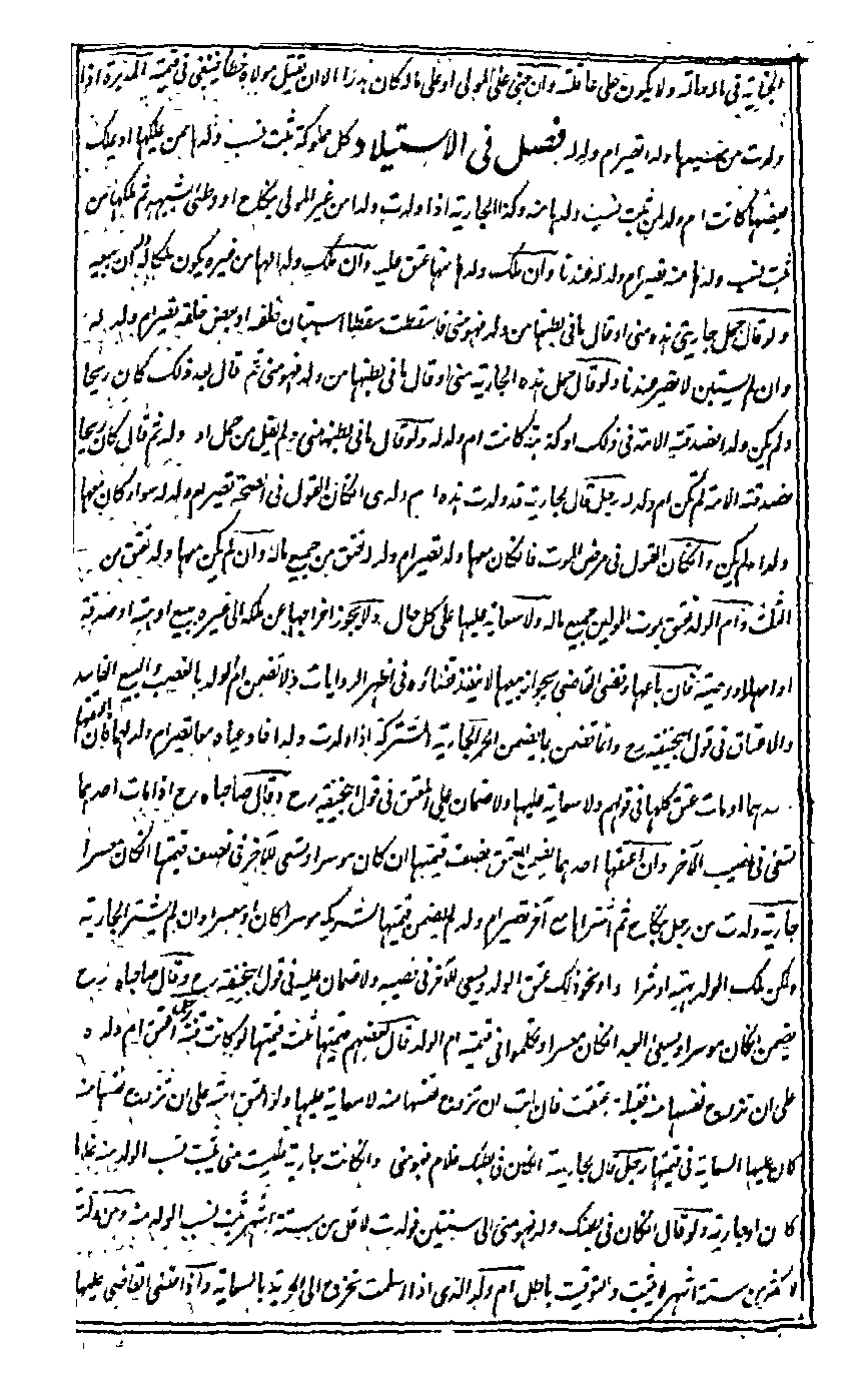 الجناية فى مالا وماله ولا يكون على عاقلته وان جنى على المولى او على ماله كان هدرا الا ان يقتل مولاه خطأ فيسعى فى قيمته المدبرة اذا
ولدت من سيدها ولدا تصير ام ولد له فصل فى الاستيلاد كل مملوكة ثبت نسب ولدها ممن يملكها او يملك
بعضها كانت ام ولد لمن ثبت نسب ولدها منه وكذا الجارية اذا ولدت ولدا من غير المولى بنكاح او وطئ بشبهة ثم ملكها من
ثبت نسب ولدها منه تصير ام ولد له عندنا وان ملك ولدها منها عتق عليه وان ملك ولدا لها من غيره يكون ملكا له ان يبيعه
ولو قال حمل جاريتى هذه منى او قال ما فى بطنها من ولد فهو منى فاسقطت سقطا استبان خلقه او بعض خلقه تصير ام ولد له
وان لم يستبن لا تصير عندنا ولو قال حمل هذه الجارية منى او قال ما فى بطنها من ولد فهو منى ثم قال بعد ذلك كان ريحا
ولم يكن ولدا فصدقته الامة فى ذلك او كذبته كانت ام ولد له ولو قال ما فى بطنها منى ولم يقل من حمل او ولد ثم قال كان ريحا
فصدقته الامة لم تكن ام ولد له رجل قال لجارية قد ولدت هذه ام ولدى ان كان القول فى الصحة تصير ام ولد له سواء كان معها
ولد او لم يكن وان كان القول فى مرض الموت فان كان معها ولد تصير ام ولد له تعتق من جميع ماله وان لم يكن معها ولد تعتق من
الثلث وام الولد تعتق بموت المولى من جميع ماله ولا سعاية عليها على كل حال ولا يجوز اخراجها عن ملكه الى غيره ببيع او هبة او صدقة
او امهار او وصية فان باعها وقضى القاضى بجواز بيعها لا ينفذ قضاؤه فى اظهر الروايات ولا تضمن ام الولد بالغصب والبيع الفاسد
والاعتاق فى قول ابيحنيفة رح وانما تضمن بما يضمن الحر الجارية المشتركة اذا ولدت ولدا فادعياه معا تصير ام ولد لهما فان اعتقها
احدهما او مات عتق كلها فى قولهم ولا سعاية عليها ولا ضمان على المعتق فى قول ابيحنيفة رح وقال صاحباه رح اذا مات احدهما
تسعى فى نصيب الآخر وان اعتقها احدهما يضمن المعتق نصف قيمتها ان كان موسرا وتسعى للآخر فى نصف قيمتها ان كان معسرا
جارية ولدت من رجل بنكاح ثم اشتراها مع آخر تصير ام ولد له يضمن قيمتها لشريكه موسرا كان او معسرا وان لم يشتر الجارية
ولكن ملك الولد بهبة او شراء او نحو ذلك عتق الولد ويسعى للآخر فى نصيبه ولا ضمان عليه فى قول ابيحنيفة رح وقال صاحباه رح
يضمن ان كان موسرا ويسعى الولد ان كان معسرا وتكلموا فى قيمة ام الولد قال بعضهم قيمتها ثلث قيمتها لو كانت قنة رجل اعتق ام ولده
على ان تزوج نفسها منه فقبلت عتقت فان ابت ان تزوج نفسها منه لا سعاية عليها ولو اعتق امته على ان تزوج نفسها منه
كان عليها السعاية فى قيمتها رجل قال لجاريته ان كان فى بطنك غلام فهو منى وان كانت جارية فليست منى يثبت نسب الولد منه غلاما
كان او جارية ولو قال ان كان فى بطنك ولد فهو منى الى سنتين فولدت لاقل من ستة اشهر يثبت نسب الولد منه ومن ولدت
لاكثر من ستة اشهر لا يثبت والتوقيت باطل ام ولد الذمى اذا اسلمت تخرج الى الحرية بالسعاية واذا قضى القاضى عليها